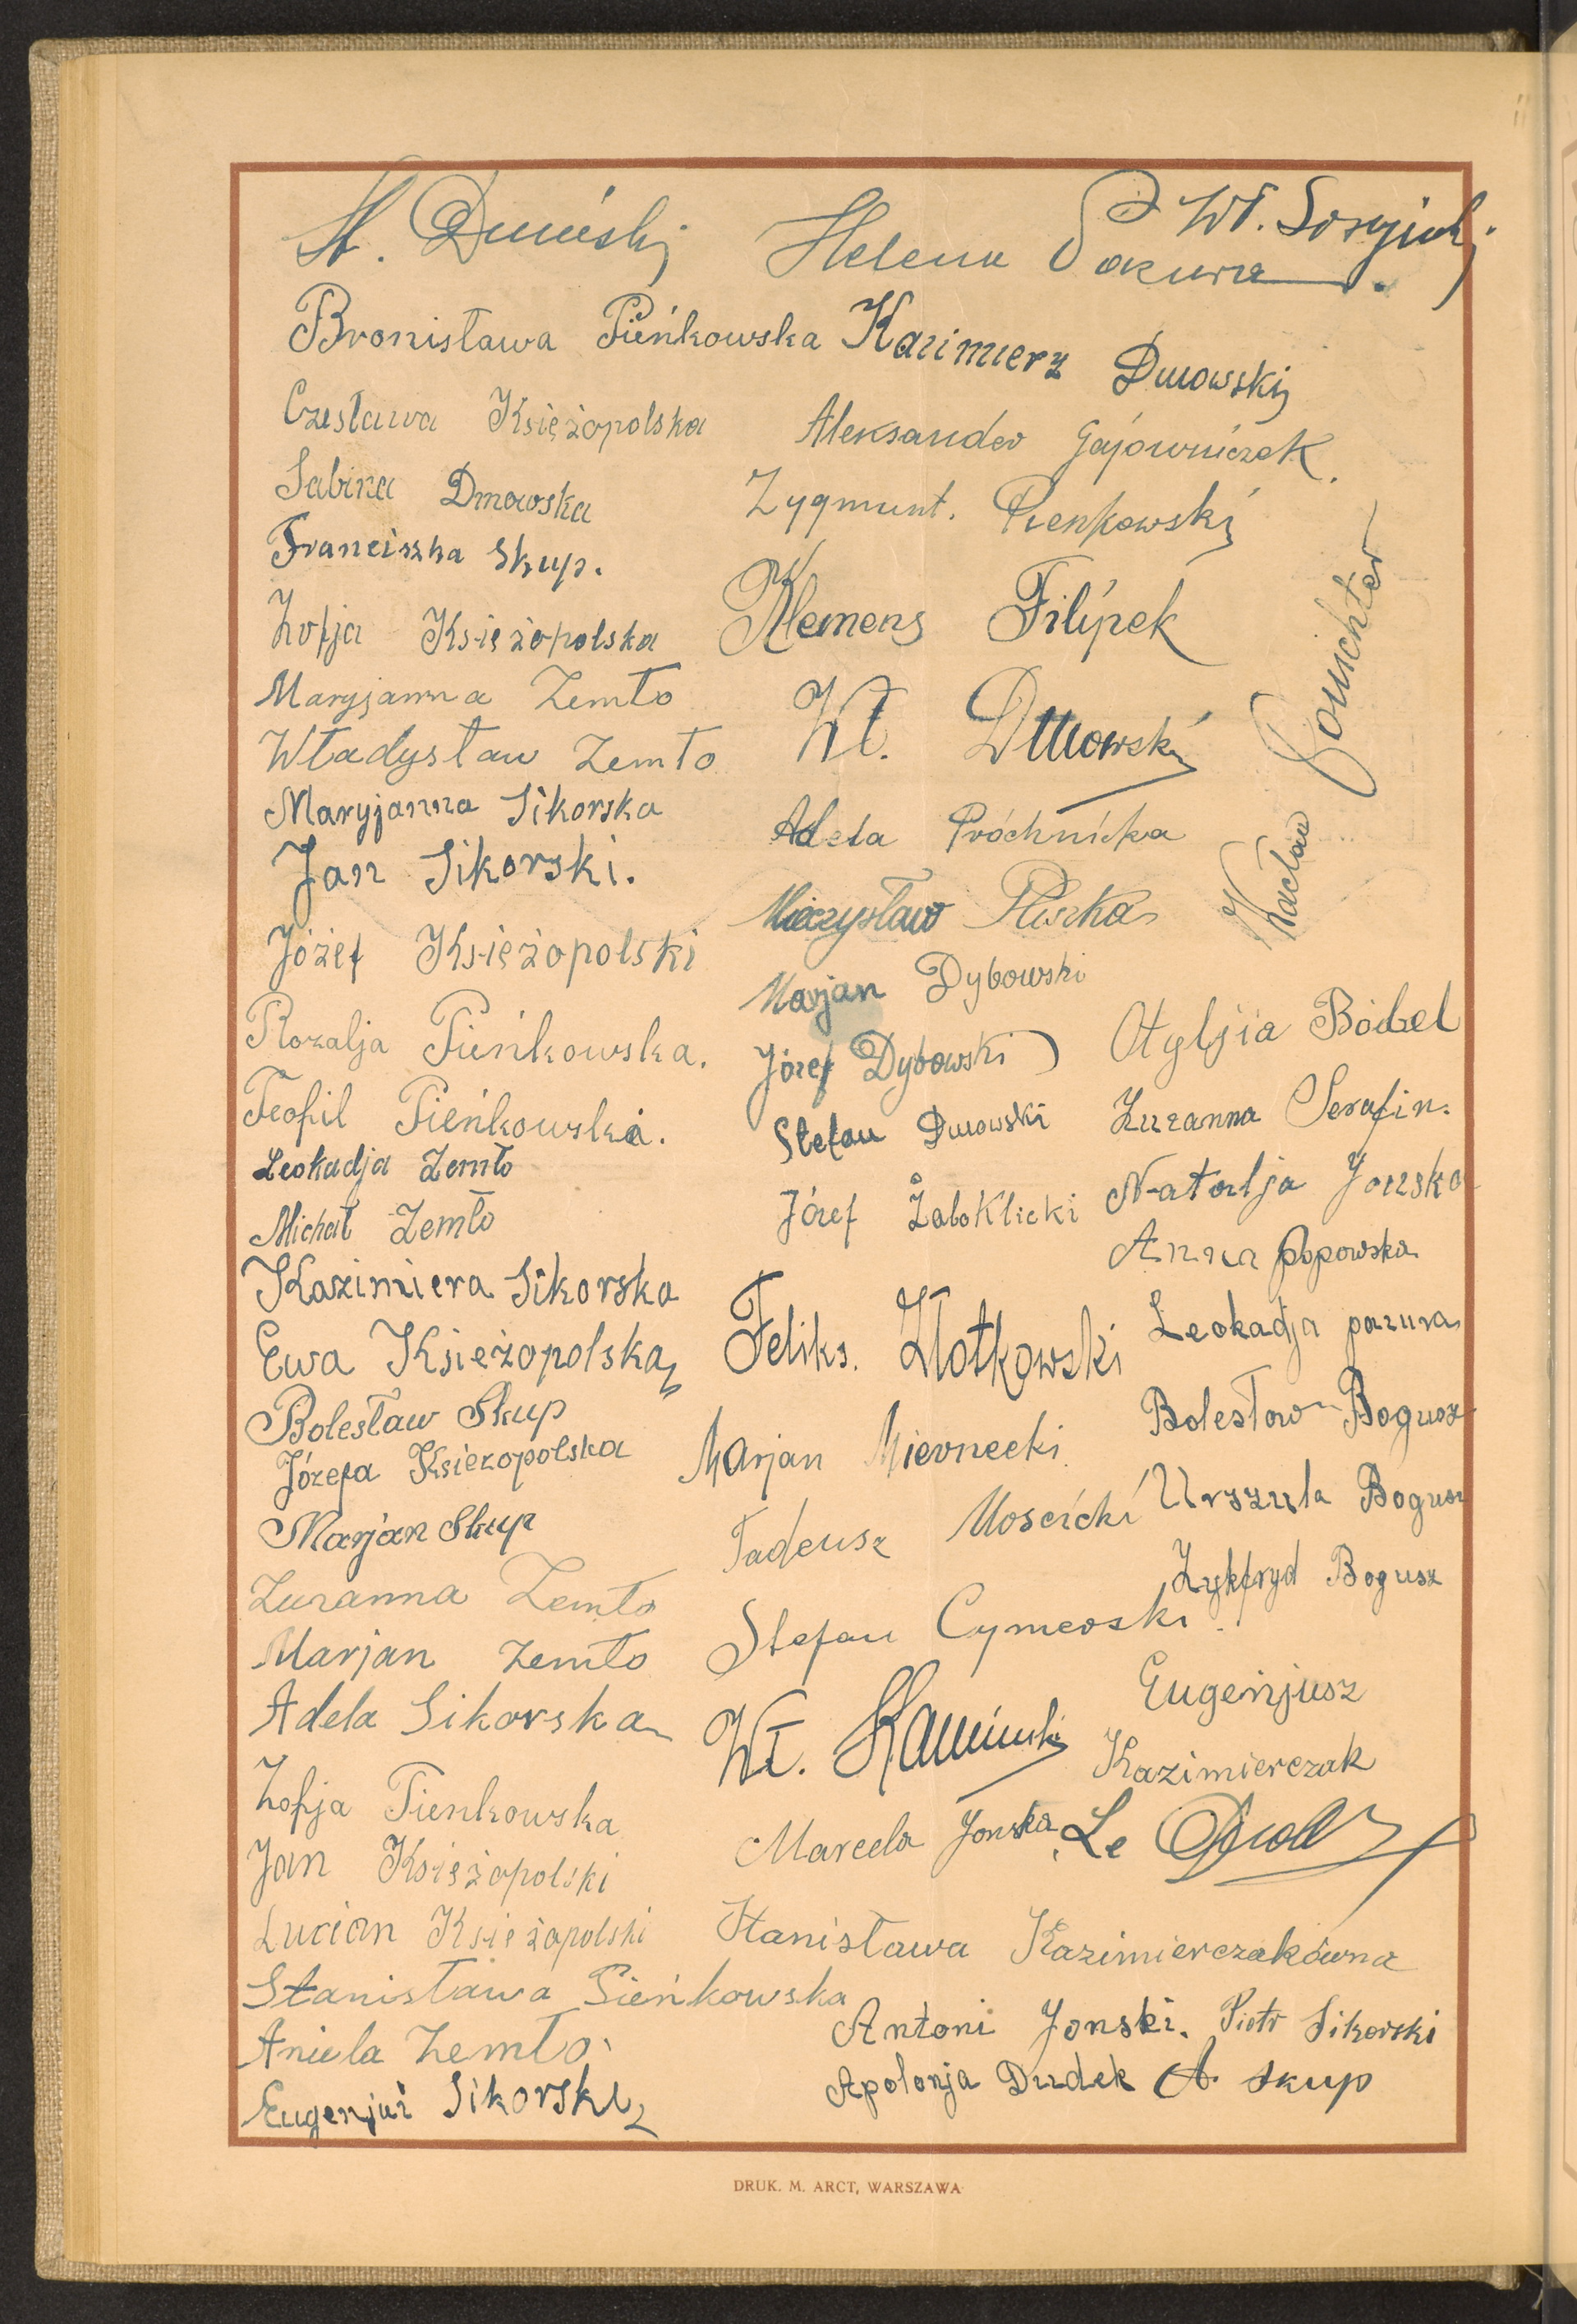 Helena Pazura
Wł.
Bronisława Pieńkowska
Kazimierz Dmowski
Czesława Księżopolska
Aleksander Gajowniczek.
Sabina Dmowska
Zygmunt. Pienkowski
Franciszka Skup.
Zofja Księżopolska
Klemens Filipek
Maryjanna Zemło
Wł. Dmowski
Władysław Zemło
Maryjanna Sikorska
Adela Próchnicka
Jan Sikorski.
Mieczysław Pliszka
Wacław
Józef Księżopolski
Marjan Dybowski
Rozalja Pieńkowska.
Józef Dybowski
Otyljia
Teofil Pieńkowski.
Stefan Dmowski
Zuzanna Serafin.
Leokadja Zemło
Józef Żaboklicki
Natalja Jonska
Michał Zemło
Anna Popowska
Kazimiera Sikorska
Feliks. Złotkowski
Leokadja pazura
Ewa Księżopolska
Bolesław Skup
Bolesław Bogusz
Józefa Ksiezopolska
Marjan Miernecki
Urszula Bogusz
Marjan Skup
Tadeusz Moscicki
Zykfryd Bogusz
Zuzanna Zemło
Stefan Cymerski
Marjan Zemło
Eugenjusz
Kazimierczak
Adela Sikorska
Wł. Kaminski
Zofja Pienkowska
Marcela Jonska
Le
Jan Księżopolski
Lucian Księżopolski
Stanisława Kazimierczakówna
Stanisława Pieńkowska
Antoni Jonski. Piotr Sikorski
Aniela Zemło.
Apolonja Dudek A. Skup
Eugenjusz Sikorski
DRUK. M. ARCT, WARSZAWA